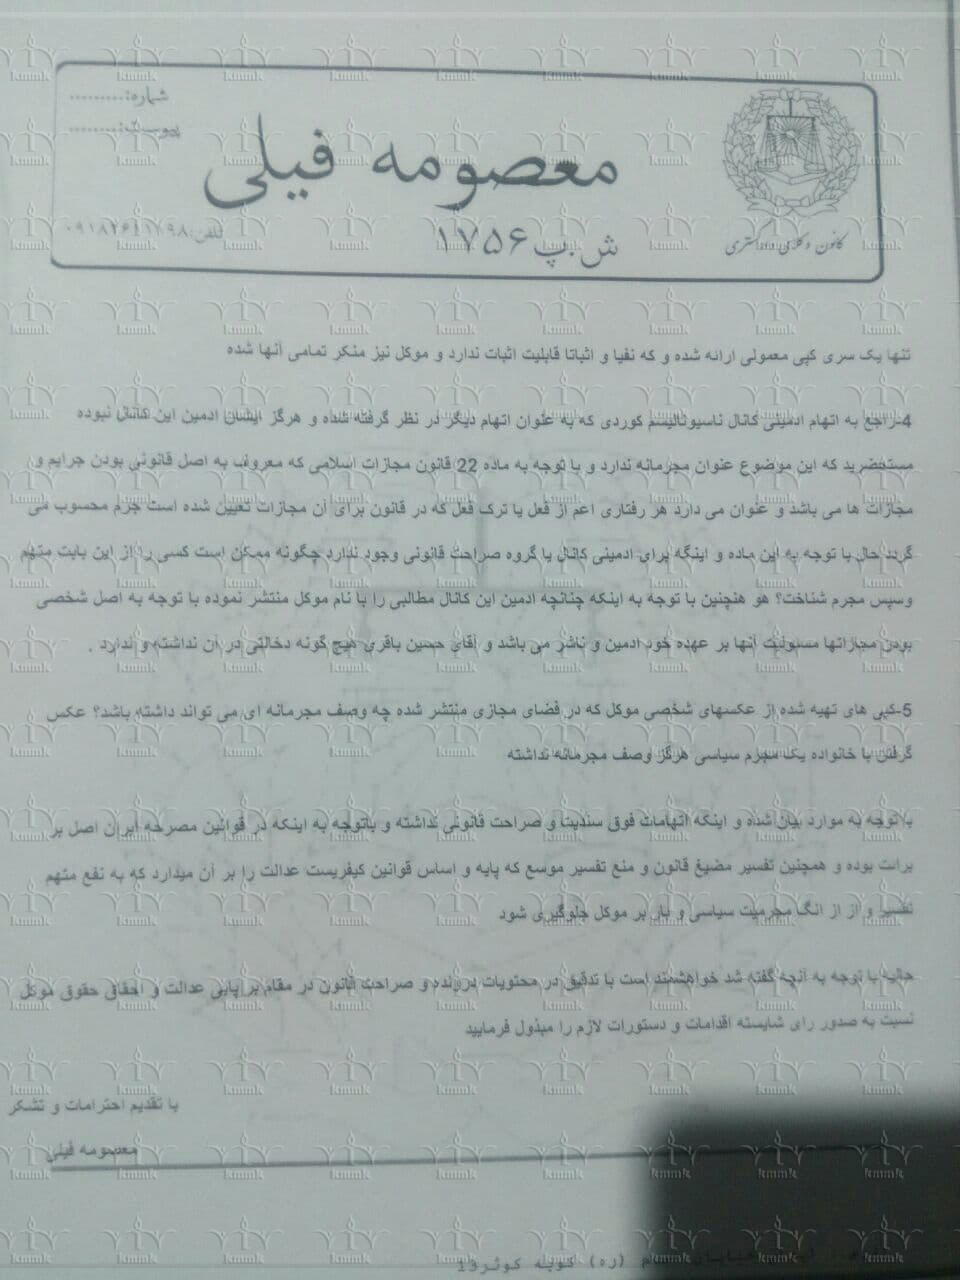 شماره:.........
پیوست:.........
معصومه فیلی
ش.پ ۱۷۵۶
کانون وکلای دادگستری
تنها یک سری کپی معمولی ارائه شده و که نفیا و اثباتا قابلیت اثبات ندارد و موکل نیز منکر تمامی آنها شده
4-راجع به اتهام ادمینی کانال ناسیونالیسم کوردی که به عنوان اتهام دیگر در نظر گرفته شده و هرگز ایشان ادمین این کانال نبوده
مستحضرید که این موضوع عنوان مجرمانه ندارد و با توجه به ماده 22 قانون مجازات اسلامی که معروف به اصل قانونی بودن جرایم و
مجازات ها می باشد و عنوان می دارد هر رفتاری اعم از فعل یا ترک فعل که در قانون برای آن مجازات تعیین شده است جرم محسوب می
گردد حال با توجه به این ماده و اینکه برای ادمینی کانال یا گروه صراحت قانونی وجود ندارد چگونه ممکن است کسی را از این بابت متهم
وسپس مجرم شناخت؟ هو هنچنین با توجه به اینکه چنانچه ادمین این کانال مطالبی را با نام موکل منتشر نموده با توجه به اصل شخصی
بودن مجازاتها مسئولیت آنها بر عهده خود ادمین و ناشر می باشد و آقای حسین باقری هیچ گونه دخالتی در آن نداشته و ندارد .
5-کپی های تهیه شده از عکسهای شخصی موکل که در فضای مجازی منتشر شده چه وصف مجرمانه ای می تواند داشته باشد؟ عکس
گرفتن با خانواده یک مجرم سیاسی هرگز وصف مجرمانه نداشته
با توجه به موارد بیان شده و اینکه اتهامات فوق سندیت و صراحت قانونی نداشته و باتوجه به اینکه در قوانین مصرحه ایران اصل بر
برائت بوده و همچنین تفسیر مضیغ قانون و منع تفسیر موسع که پایه و اساس قوانین کیفریست عدالت را بر آن میدارد که به نفع متهم
تفسیر و از از انگ مجرمیت سیاسی و بار بر موکل جلوگیری شود
حالیه با توجه به آنچه گفته شد خواهشمند است با تدقیق در محتویات پرونده و صراحت قانون در مقام بر پایی عدالت و احقاق حقوق موکل
نسبت به صدور رای شایسته اقدامات و دستورات لازم را مبذول فرمایید
با تقدیم احترامات و تشکر
معصومه فیلی
(ره) کوچه کوثر13
kmmk